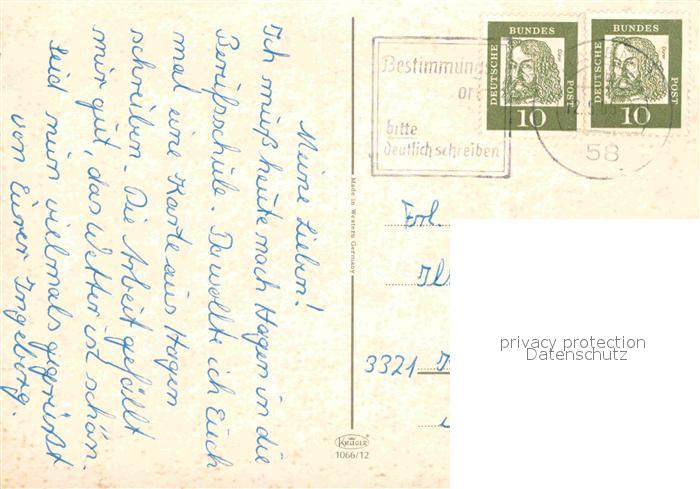 Meine Lieben!
Ich muß heute nach Hagen in die
Berufsschule. Da wollte ich Euch
mal eine Karte aus Hagen
schreiben. Die Arbeit gefällt
mir gut, das Wetter ist schön.
Seid nun vielmals gegrüßt
von Eurer Ingeborg.
Made in Western Germany
KRÜGER
1066/12
Bestimmungs
ort
bitte
deutlich schreiben
DEUTSCHE
BUNDES
POST
10
DEUTSCHE
BUNDES
POST
10
58
Frl.
3321
privacy protection
Datenschutz